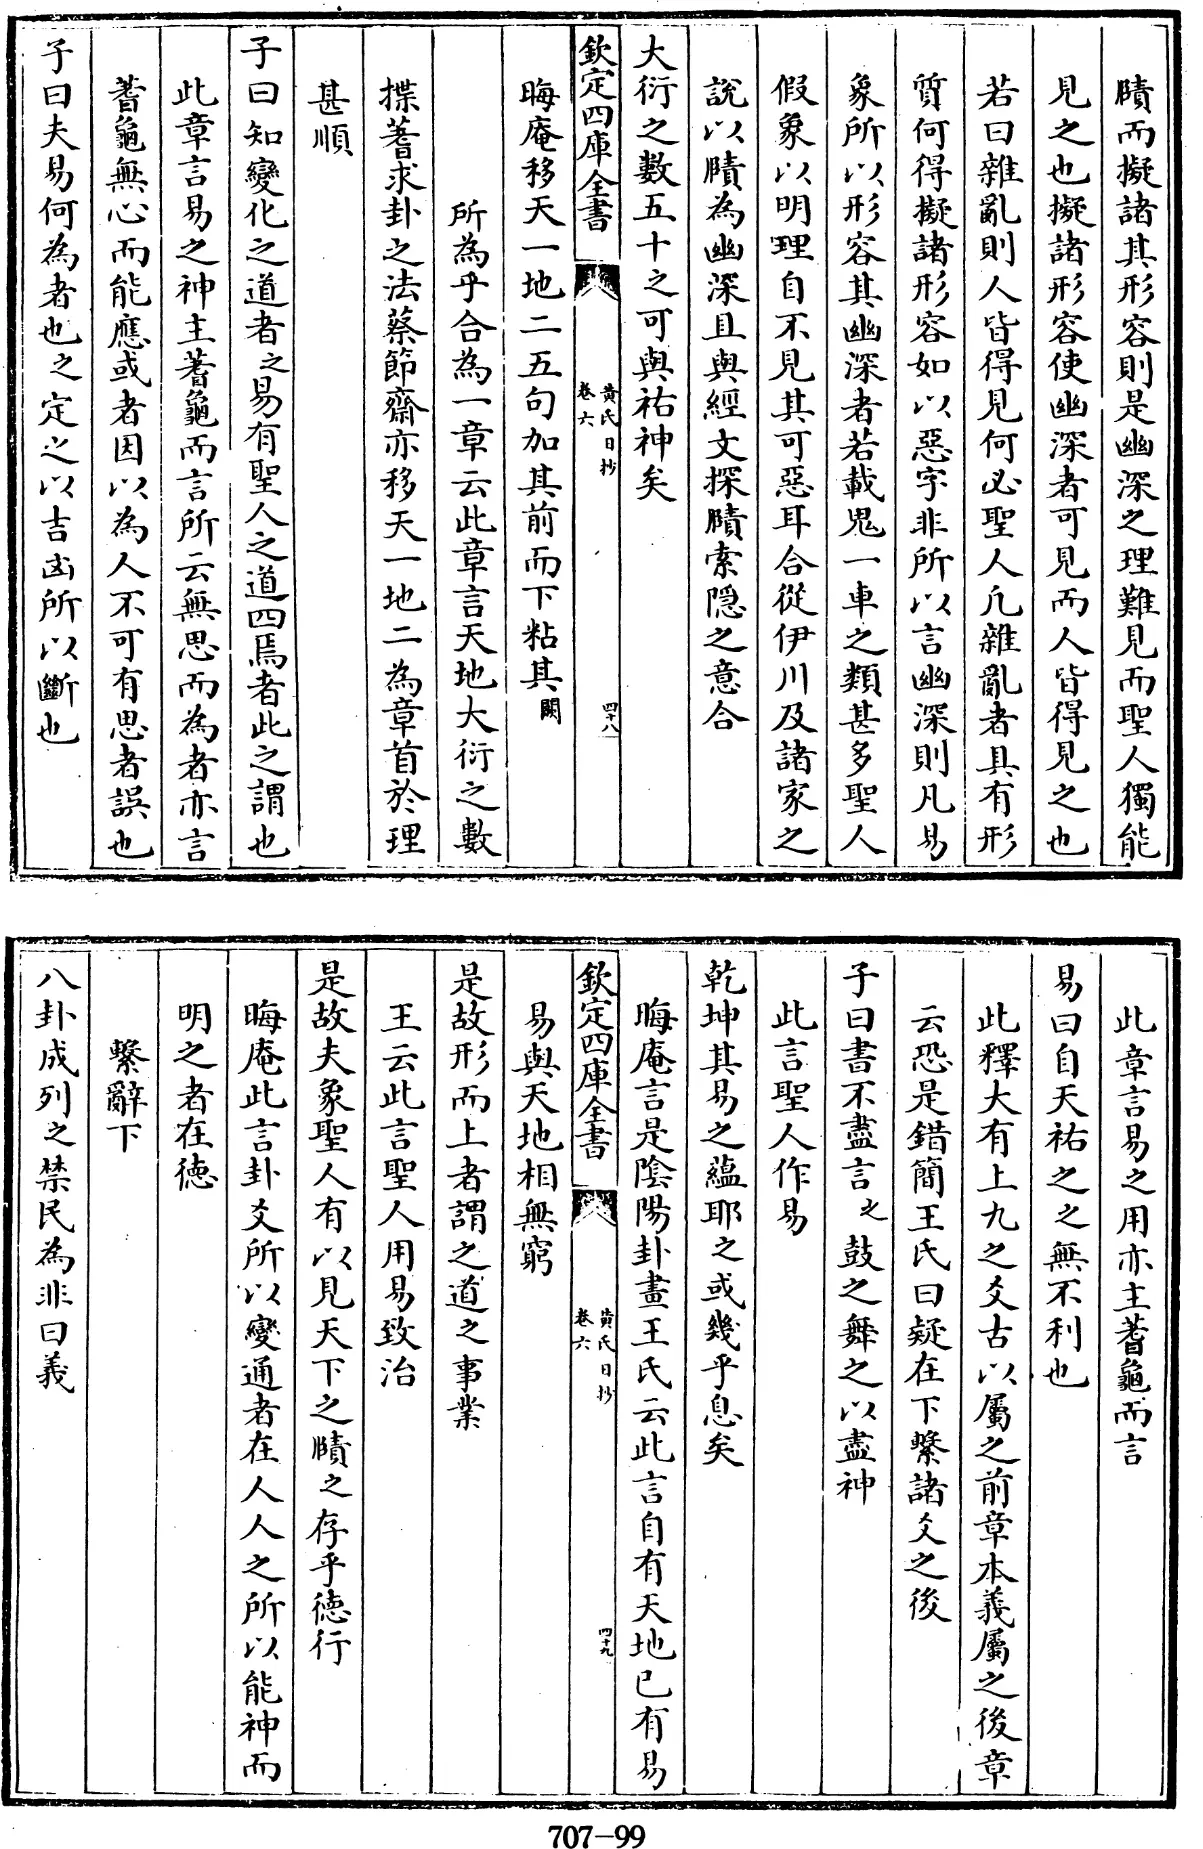 賾而擬諸其形容則是幽深之理難見而聖人獨能
見之也擬諸形容使幽深者可見而人皆得見之也
若曰雜亂則人皆得見何必聖人凢雜亂者具有形
質何得擬諸形容如以惡字非所以言幽深則凡易
象所以形容其幽深者若載鬼一車之類甚多聖人
假象以明理自不見其可惡耳合從伊川及諸家之
說以賾為幽深且與經文探賾索隠之意合
大衍之數五十之可與祐神矣
欽定四庫全書
黃氏日抄
卷六
四十八
晦庵移天一地二五句加其前而下粘其闕
所為乎合為一章云此章言天地大衍之數
揲蓍求卦之法蔡節齋亦移天一地二為章首於理
甚順
子曰知變化之道者之易有聖人之道四焉者此之謂也
此章言易之神主蓍龜而言所云無思而為者亦言
蓍龜無心而能應或者因以為人不可有思者誤也
子曰夫易何為者也之定之以吉凶所以斷也
此章言易之用亦主蓍龜而言
易曰自天祐之之無不利也
此釋大有上九之爻古以屬之前章本義屬之後章
云恐是錯簡王氏曰疑在下繫諸爻之後
子曰書不盡言之鼓之舞之以盡神
此言聖人作易
乾坤其易之蘊耶之或幾乎息矣
晦庵言是陰陽卦畫王氏云此言自有天地已有易
欽定四庫全書
黃氏日抄
卷六
四十九
易與天地相無窮
是故形而上者謂之道之事業
王云此言聖人用易致治
是故夫象聖人有以見天下之賾之存乎徳行
晦庵此言卦爻所以變通者在人人之所以能神而
明之者在徳
繫辭下
八卦成列之禁民為非曰義
707-99